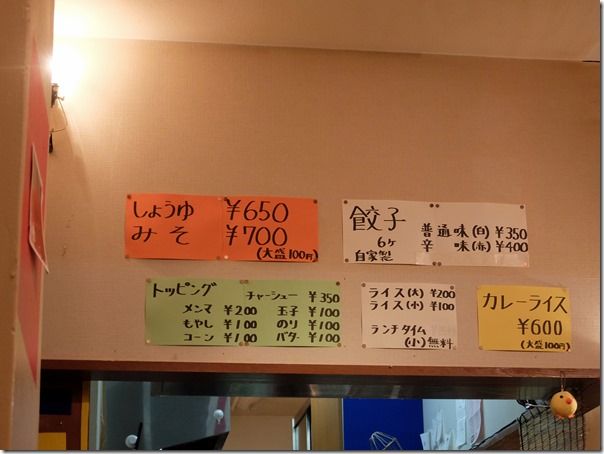 しょうゆ ¥650
みそ ¥700
(大盛100円)
餃子 普通味(白) ¥350
6ヶ 辛味(赤) ¥400
自家製
トッピング チャーシュー ¥350
メンマ ¥200 玉子 ¥100
もやし ¥100 のり ¥100
コーン ¥100 バター ¥100
ライス(大) ¥200
ライス(小) ¥100
ランチタイム
(小)無料
カレーライス
¥600
(大盛100円)